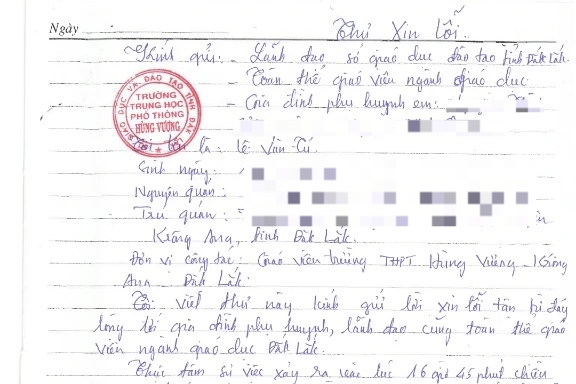 Ngày
Thư Xin lỗi
Kính gửi: - Lãnh đạo sở giáo dục đào tạo tỉnh Đăk Lăk
- Toàn thể giáo viên ngành giáo dục
- Gia đình phụ huynh em:
SỞ GIÁO DỤC VÀ ĐÀO TẠO TỈNH ĐĂK LĂK
TRƯỜNG
TRUNG HỌC
PHỔ THÔNG
HÙNG VƯƠNG
Tôi là: Lê Văn Tú.
Sinh ngày:
Nguyên quán:
Trú quán:
Krông Ana, tỉnh Đăk Lăk.
Đơn vị công tác: Giáo viên trường THPT Hùng Vương - Krông
Ana - Đăk Lăk.
Tôi viết thư này kính gửi lời xin lỗi tận tự đáy
lòng tới gia đình phụ huynh, lãnh đạo cùng toàn thể giáo
viên ngành giáo dục Đăk Lăk.
sự việc xảy ra vào lúc 16 giờ 45 phút chiều